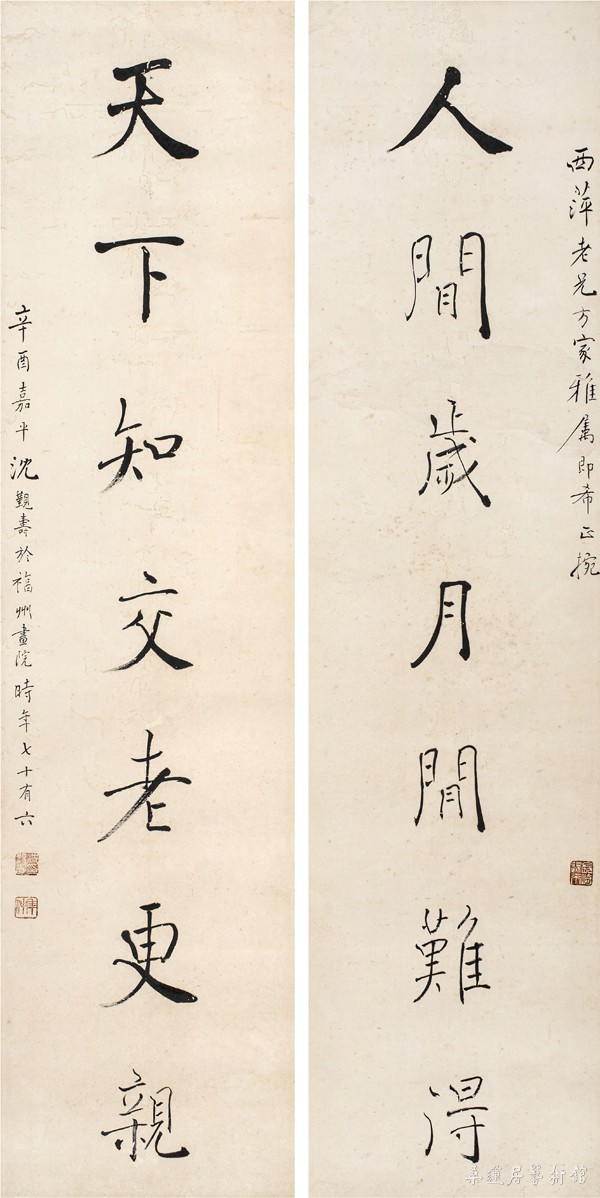 西萍老兄方家雅属即希正捥
人間歲月閒難得
天下知交老更親
辛酉嘉平沈覲壽於福州畫院時年七十有六
桑蓮居藝術館